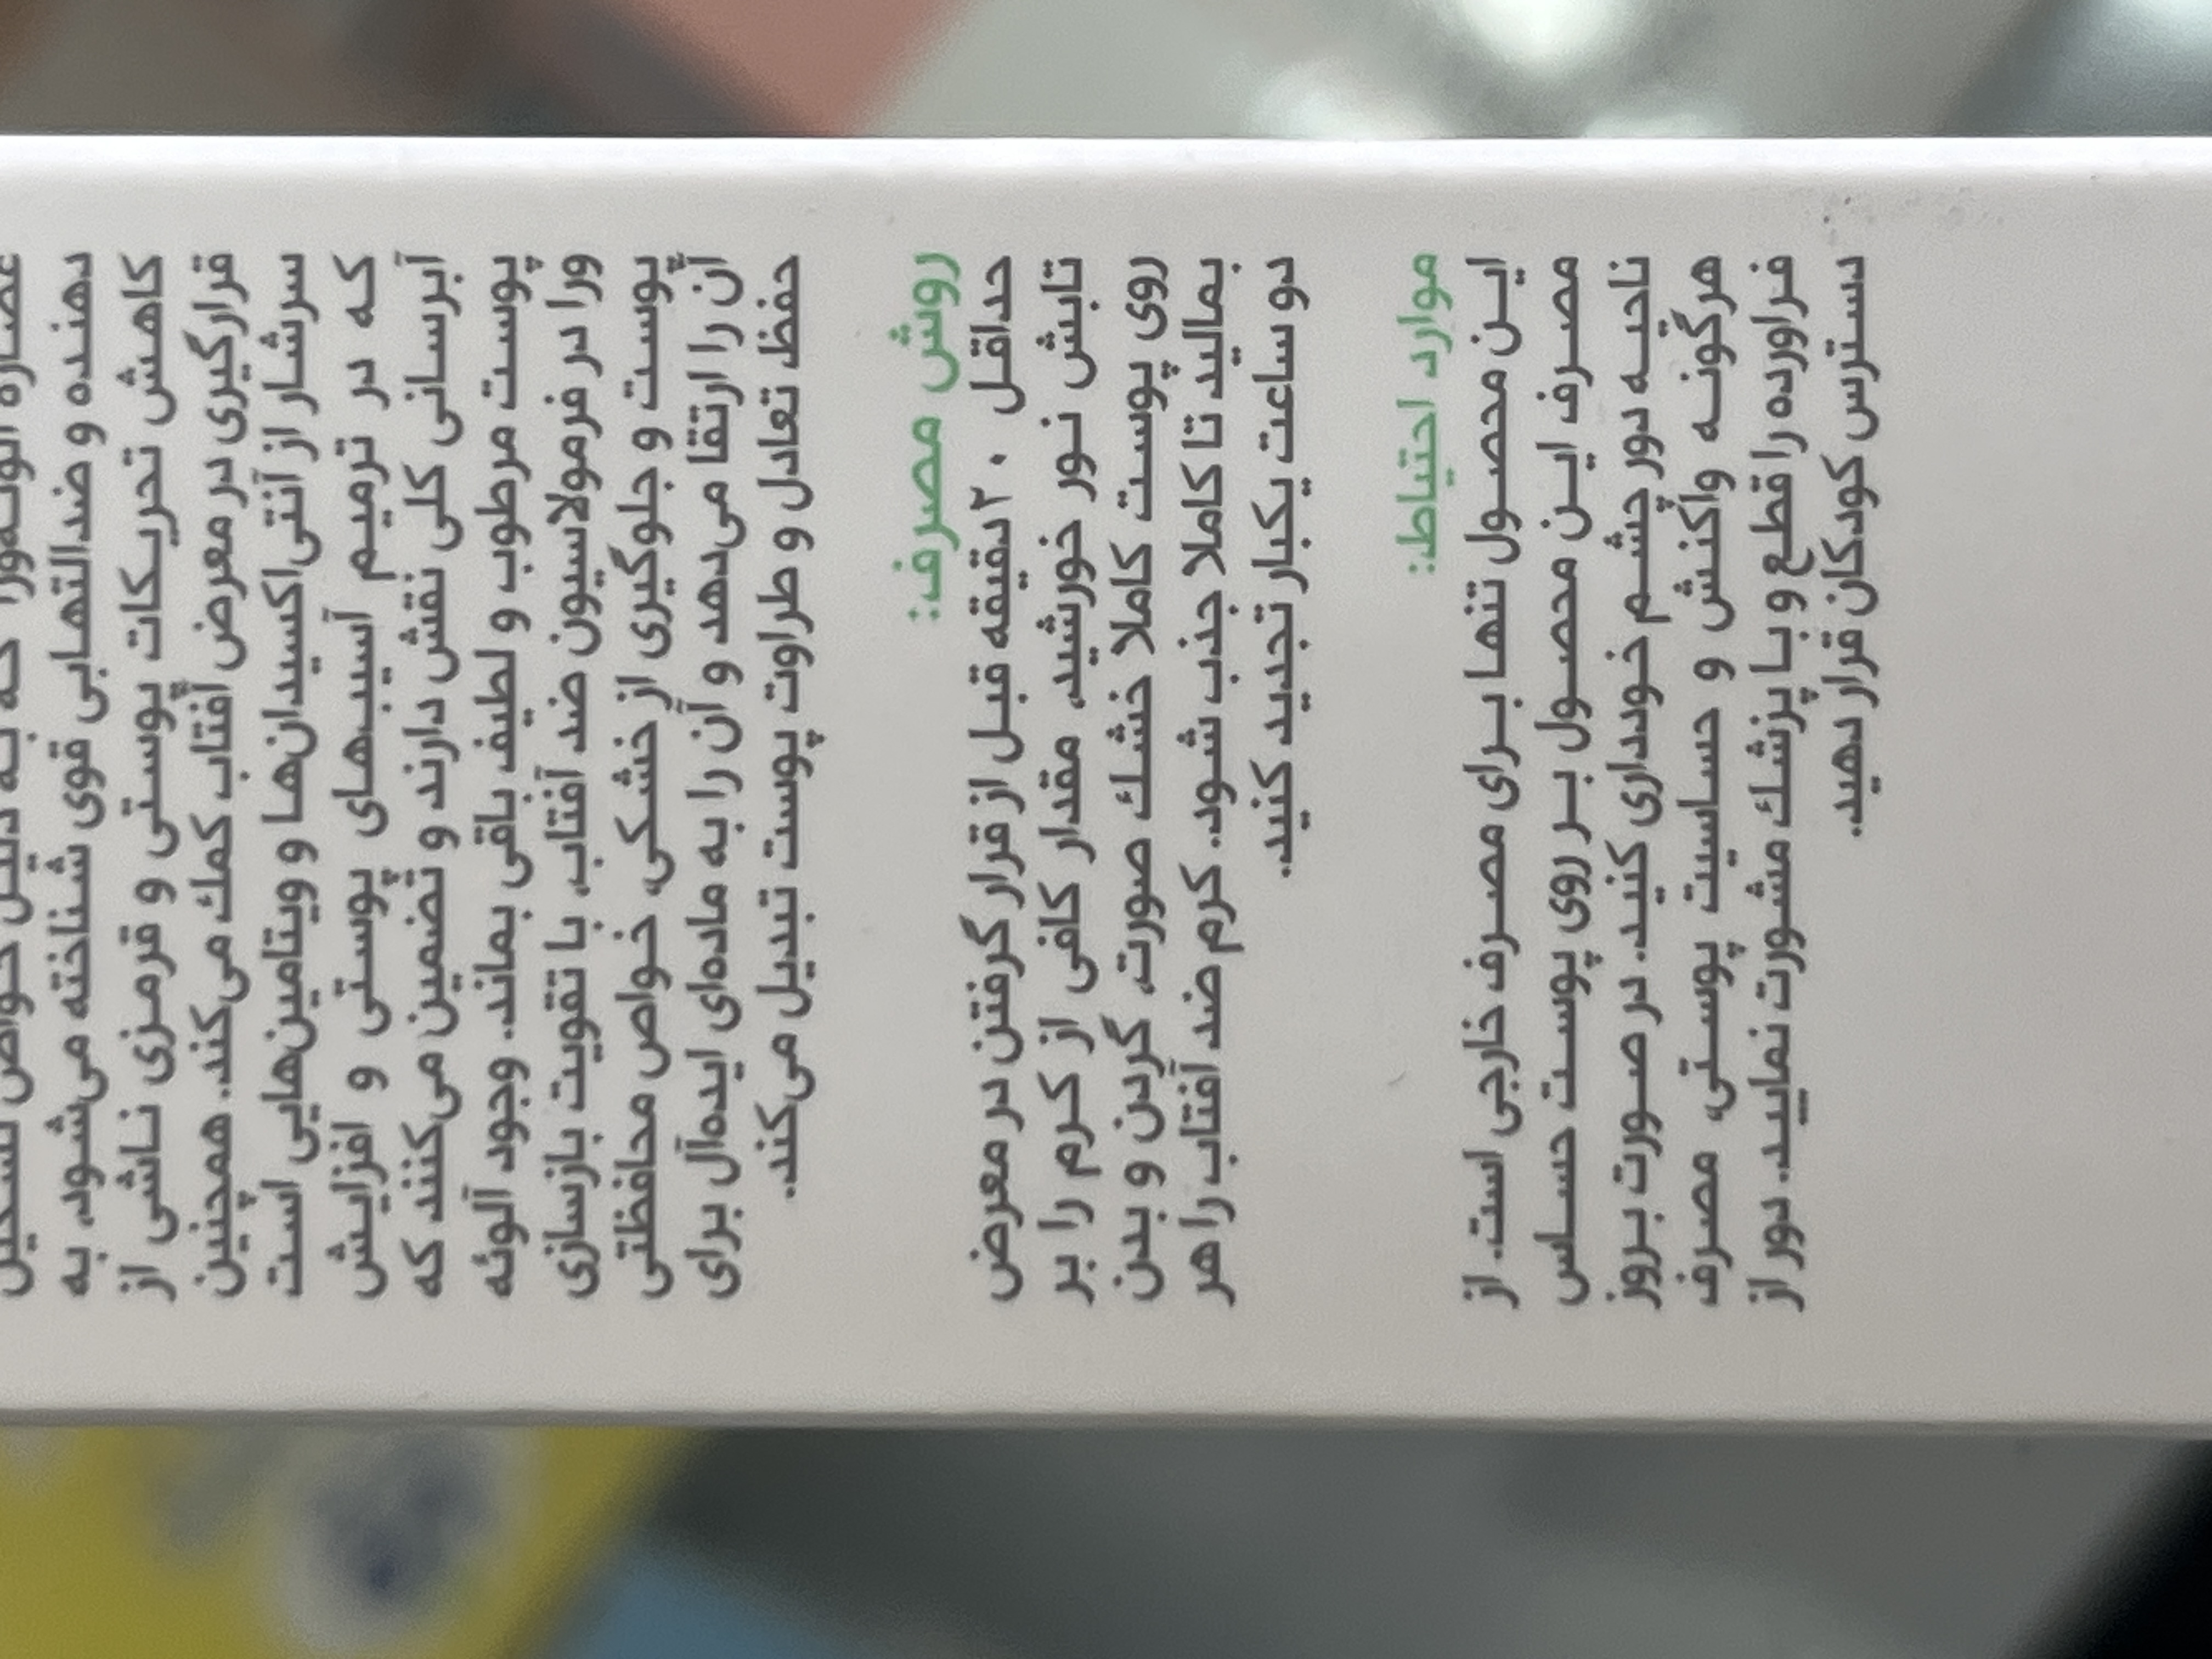 عصاره آلوئه‌ورا که به دلیل خواص تسکین
دهنده و ضدالتهابی قوی شناخته می‌شود، به
کاهش تحریکات پوستی و قرمزی ناشی از
قرارگیری در معرض آفتاب کمك می‌کند. همچنین
سرشار از آنتی‌اکسیدان‌ها و ویتامین‌هایی است
که در ترمیم آسیب‌های پوستی و افزایش
آبرسانی کلی نقش دارند و تضمین می‌کنند که
پوست مرطوب و لطیف باقی بماند. وجود آلوئه
ورا در فرمولاسیون ضد آفتاب، با تقویت بازسازی
پوست و جلوگیری از خشکی، خواص محافظتی
آن را ارتقا می‌دهد و آن را به ماده‌ای ایده‌آل برای
حفظ تعادل و طراوت پوست تبدیل می‌کند.
روش مصرف:
حداقل ۲۰ دقیقه قبل از قرار گرفتن در معرض
تابش نور خورشید، مقدار کافی از کرم را بر
روی پوست کاملا خشك صورت، گردن و بدن
بمالید تا کاملا جذب شود. کرم ضد آفتاب را هر
دو ساعت یکبار تجدید کنید.
موارد احتیاط:
این محصول تنها برای مصرف خارجی است. از
مصرف این محصول بر روی پوست حساس
ناحیه دور چشم خودداری کنید. در صورت بروز
هرگونه واکنش و حساسیت پوستی، مصرف
فراورده را قطع و با پزشك مشورت نمایید. دور از
دسترس کودکان قرار دهید.